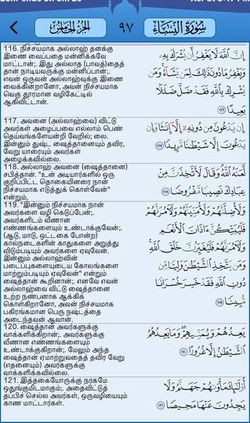 سورة النساء
٩٧
الجزء الخامس
116. நிச்சயமாக அல்லாஹ் தனக்கு
இணை வைப்பதை மன்னிக்கவே
மாட்டான்; இது அல்லாத (பாவத்)தைத்
தான் நாடியவருக்கு மன்னிப்பான்;
எவன் ஒருவன் அல்லாஹ்வுக்கு இணை
வைக்கின்றானோ, அவன் நிச்சயமாக
வெகு தூரமான வழிகேட்டில்
ஆகிவிட்டான்.
إِنَّ ٱللَّهَ لَا يَغْفِرُ أَن يُشْرَكَ بِهِۦ
وَيَغْفِرُ مَا دُونَ ذَٰلِكَ لِمَن يَشَآءُ وَمَن
يُشْرِكْ بِٱللَّهِ فَقَدْ ضَلَّ ضَلَٰلًۢا
بَعِيدًا
117. அவனை (அல்லாஹ்வை) விட்டு
அவர்கள் அழைப்பவை எல்லாம் பெண்
தெய்வங்களேயன்றி வேறில்லை; இன்னும்
துஷ்ட ஷைத்தானையும் தவிர,
வேறு யாரையும் அவர்கள்
அழைக்கவில்லை.
إِن يَدْعُونَ مِن دُونِهِۦٓ إِلَّآ إِنَٰثًا وَإِن
يَدْعُونَ إِلَّا شَيْطَٰنًا مَّرِيدًا
118. அல்லாஹ் அவனை (ஷைத்தானை)
சபித்தான். "உன் அடியார்களில் ஒரு
குறிப்பிட்ட தொகையினரை நான்
நிச்சயமாக எடுத்துக் கொள்வேன்"
என்றும்,
لَّعَنَهُ ٱللَّهُ وَقَالَ لَأَتَّخِذَنَّ مِنْ
عِبَادِكَ نَصِيبًا مَّفْرُوضًا
119. "இன்னும் நிச்சயமாக நான்
அவர்களை வழி கெடுப்பேன்;
அவர்களிடம் வீணான
எண்ணங்களையும் உண்டாக்குவேன்;
(ஆடு, மாடு, ஒட்டகை போன்ற)
கால்நடைகளின் காதுகளை அறுத்து
விடும்படியும் அவர்களை ஏவுவேன்.
இன்னும் அல்லாஹ்வின்
படைப்புகளையுடைய கோலங்களை
மாற்றும்படியும் ஏவுவேன்" என்றும்
ஷைத்தான் கூறினான்; எனவே எவன்
அல்லாஹ்வை விட்டு ஷைத்தானை
உற்ற நண்பனாக ஆக்கிக்
கொள்கிறானோ, அவன் நிச்சயமாக
பகிரங்கமான பெரு நஷ்டத்தை
அடைந்தவன் ஆவான்.
وَلَأُضِلَّنَّهُمْ وَلَأُمَنِّيَنَّهُمْ وَلَءَامُرَنَّهُمْ
فَلَيُبَتِّكُنَّ ءَاذَانَ ٱلْأَنْعَٰمِ
وَلَءَامُرَنَّهُمْ فَلَيُغَيِّرُنَّ خَلْقَ ٱللَّهِ
وَمَن يَتَّخِذِ ٱلشَّيْطَٰنَ وَلِيًّا مِّن
دُونِ ٱللَّهِ فَقَدْ خَسِرَ خُسْرَانًا
مُّبِينًا
120. ஷைத்தான் அவர்களுக்கு
வாக்களிக்கிறான்; அவர்களுக்கு
வீணான எண்ணங்களையும்
உண்டாக்குகின்றான்; மேலும் அந்த
ஷைத்தான் ஏமாற்றுவதைத் தவிர வேறு
(எதனையும்) அவர்களுக்கு
வாக்களிக்கவில்லை.
يَعِدُهُمْ وَيُمَنِّيهِمْ وَمَا يَعِدُهُمُ
ٱلشَّيْطَٰنُ إِلَّا غُرُورًا
121. இத்தகையோருக்கு நரகமே
ஒதுங்குமிடமாகும்; அதைவிட்டுத்
தப்பிச் செல்ல அவர்கள், ஒருவழியையும்
காண மாட்டார்கள்.
أُو۟لَٰٓئِكَ مَأْوَىٰهُمْ جَهَنَّمُ وَلَا
يَجِدُونَ عَنْهَا مَحِيصًا